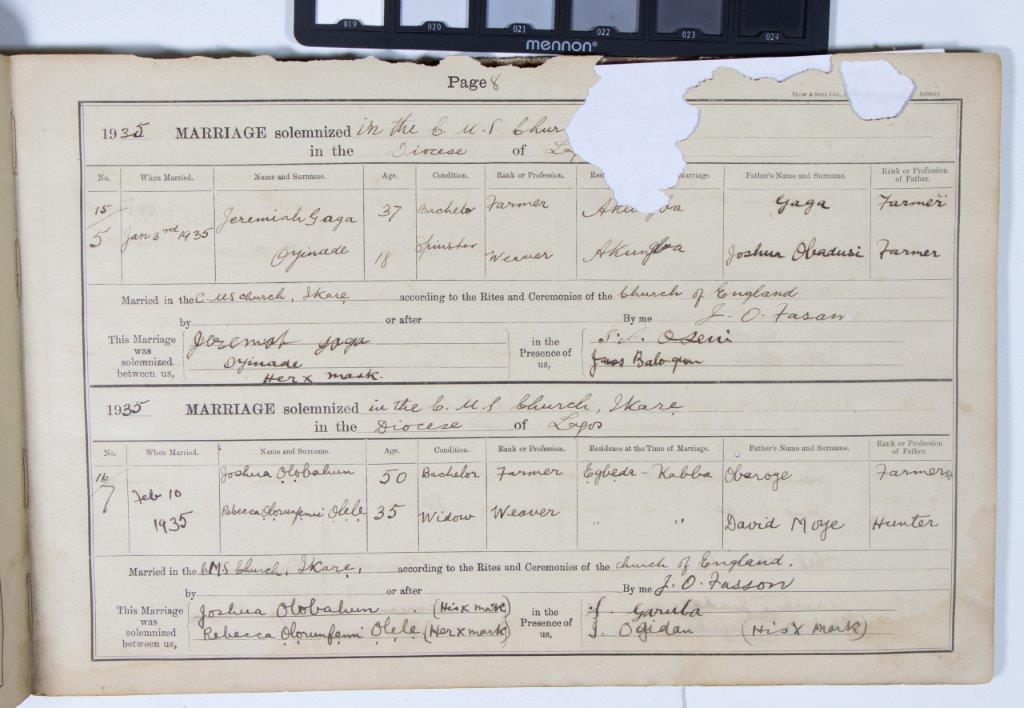 019 020 021 022 023 024
mennon®
Page 8
1935 MARRIAGE solemnized in the C. M. S Chur
in the Diocese of
No. When Married. Name and Surname. Age. Condition. Rank or Profession. Father's Name and Surname. Rank or Profession of Father.
15 Jeremiah Gaga 37 Bachelor Farmer Gaga Farmer
5 Jan 3rd 1935 Oyinade 18 Spinster Weaver Akungba Joshua Obadusi Farmer
Married in the C. MS church, Ikare according to the Rites and Ceremonies of the Church of England
by or after By me J. O. Fasan
This Marriage was solemnized between us, in the Presence of us,
Oyinade James Balogun
Her x mark
1935 MARRIAGE solemnized in the C. M. S Church, Ikarẹ
in the Diocese of Lagos
No. When Married. Name and Surname. Age. Condition. Rank or Profession. Residence at the Time of Marriage. Father's Name and Surname. Rank or Profession of Father.
16 Joshua Ọlọbahun 50 Bachelor Farmer Ẹgbẹdẹ - Kabba Obaroge Farmer
7 Feb 10 1935 Rebecca Ọlọrunfẹmi Ọlẹlẹ 35 Widow Weaver " " David Moye Hunter
Married in the CMS Church, Ikarẹ, according to the Rites and Ceremonies of the church of England.
by or after By me J. O. Fasson
This Marriage was solemnized between us, Joshua Olobahun (His X mark) in the Presence of us, Garuba
Rebecca Ọlọrunfẹmi Ọlẹlẹ (Her x mark) J. Ogidan (His X mark)